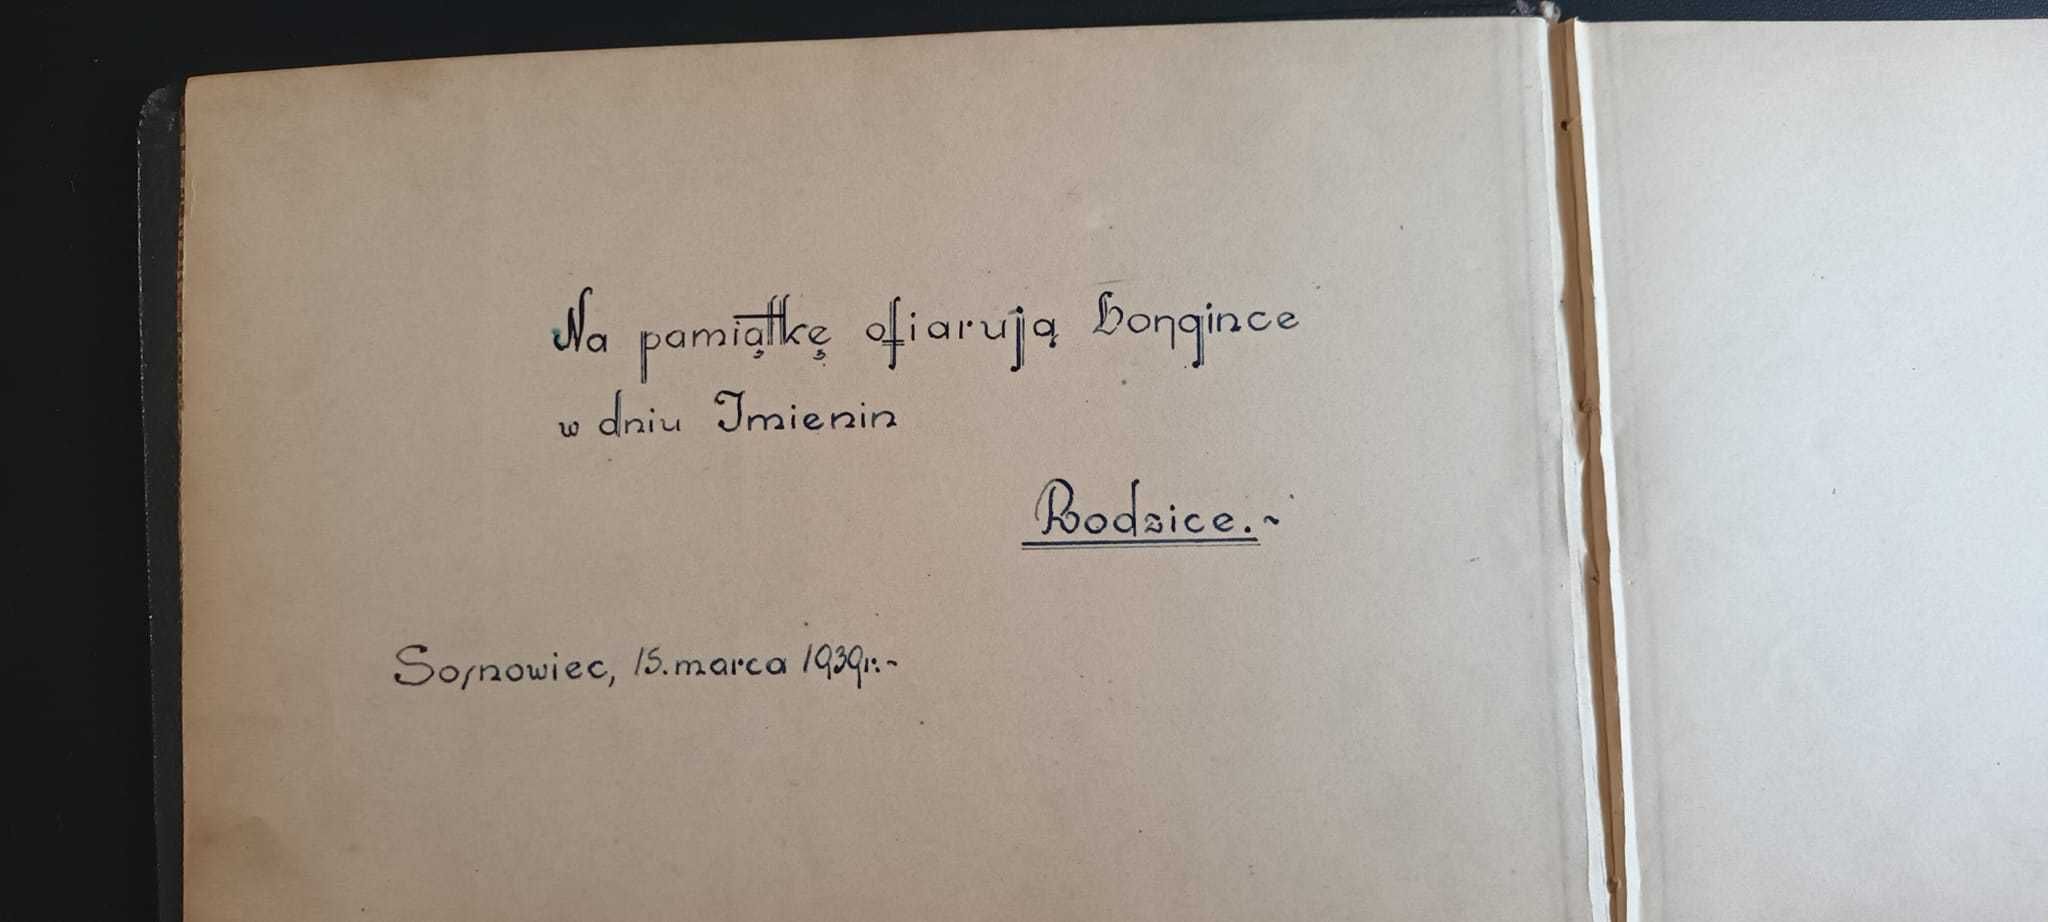 Na pamiątkę ofiarują Longince
w dniu Imienin
Rodzice.~
Sosnowiec, 15. marca 1939r.~